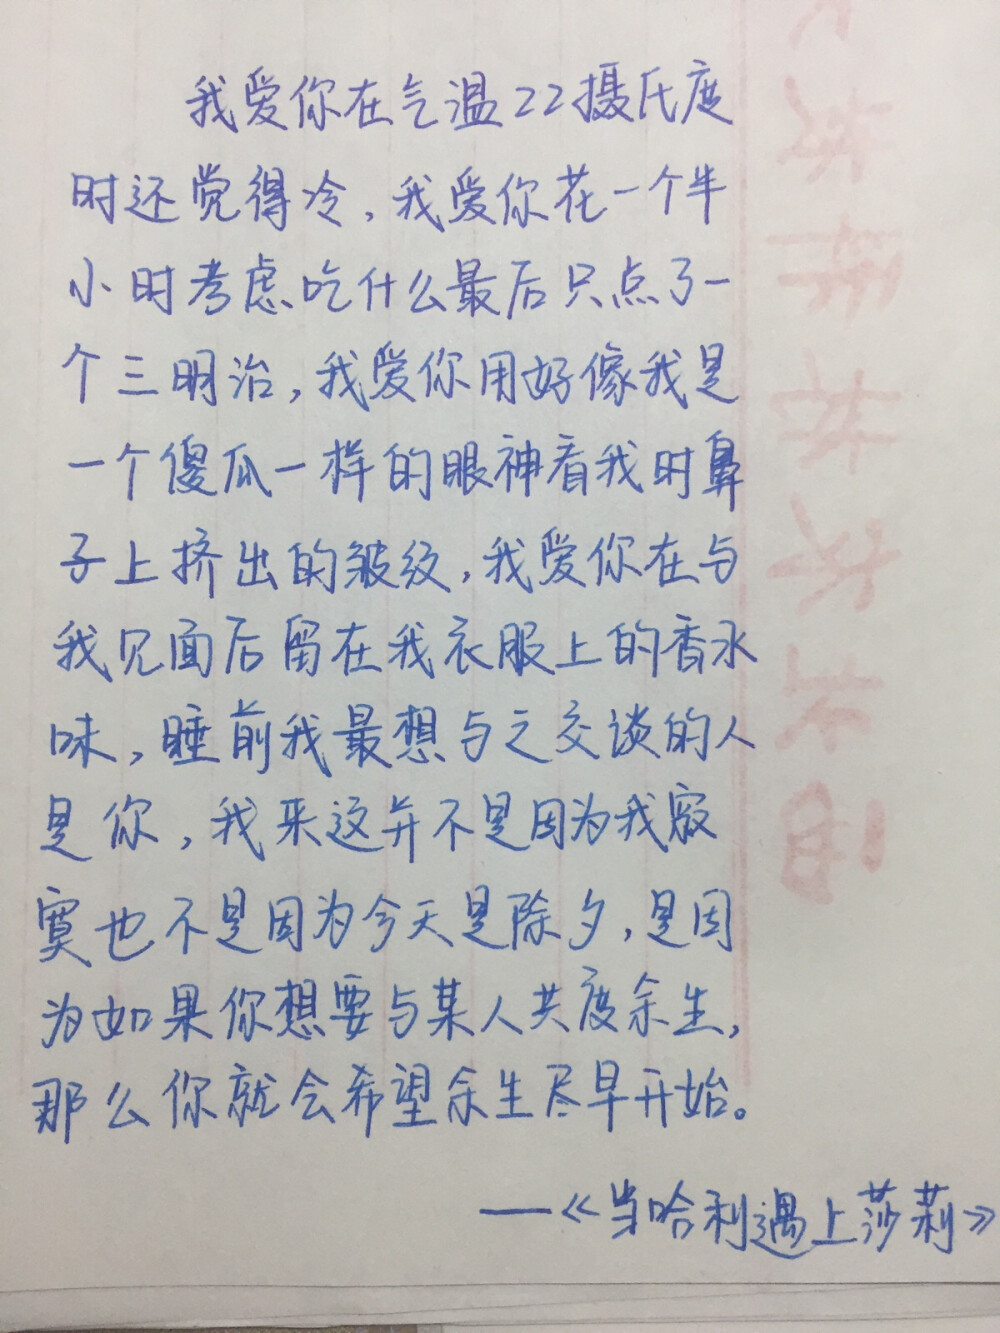 我爱你在气温22摄氏度
时还觉得冷，我爱你花一个半
小时考虑吃什么最后只点了一
个三明治，我爱你用好像我是
一个傻瓜一样的眼神看我时鼻
子上挤出的皱纹，我爱你在与
我见面后留在我衣服上的香水
味，睡前我最想与之交谈的人
是你，我来这并不是因为我寂
寞也不是因为今天是除夕，是因
为如果你想要与某人共度余生，
那么你就会希望余生尽早开始。
——《当哈利遇上莎莉》